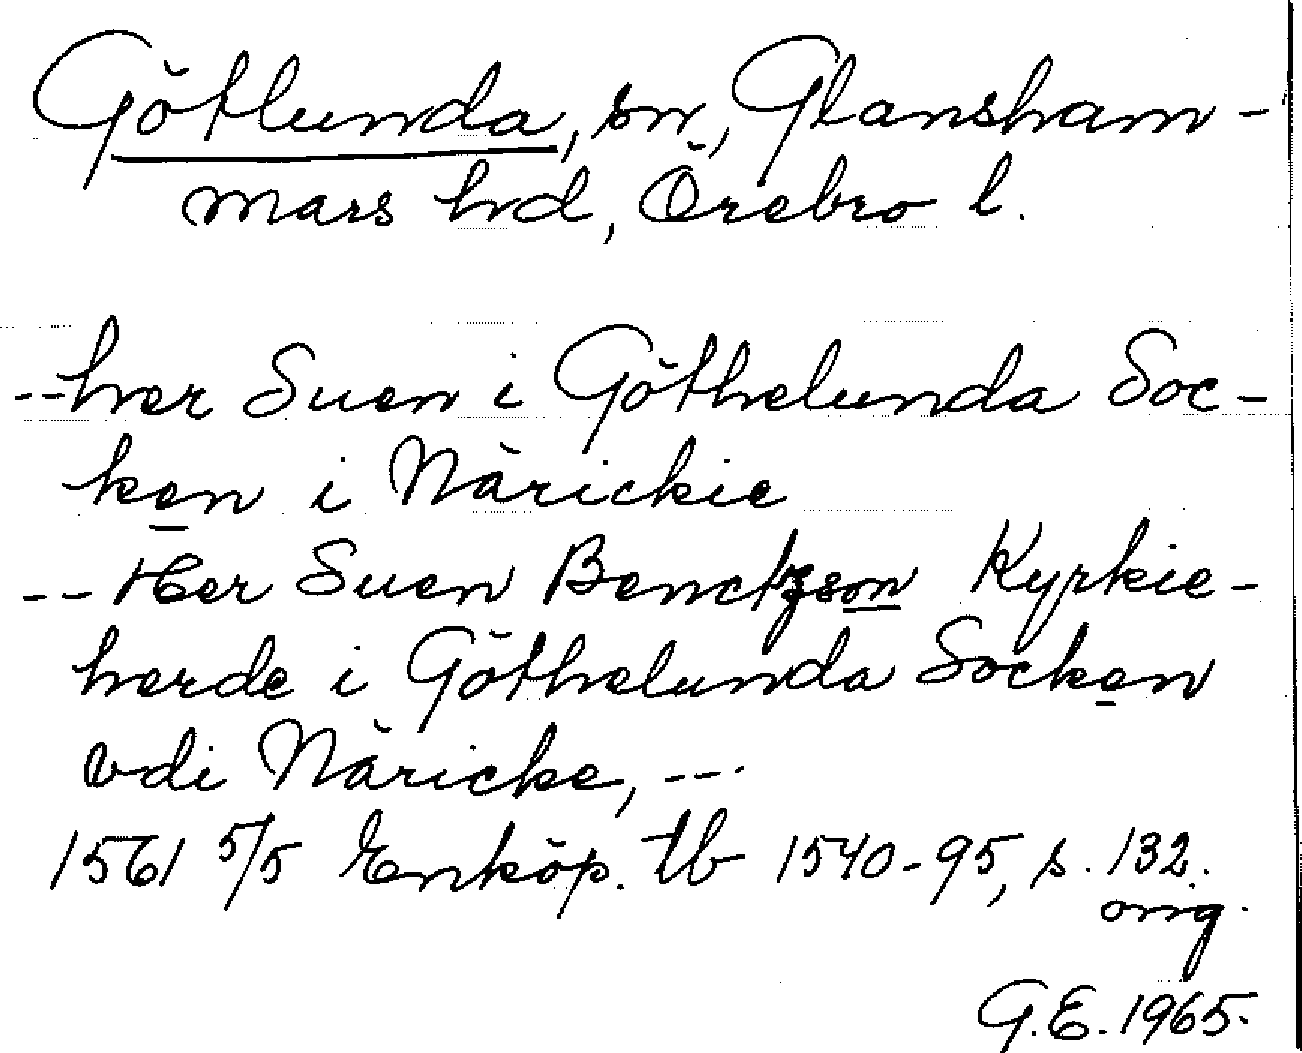 Götlunda, sn, Glansham-
mars hd, Örebro l.
--her Suen i Göthelunda Soc-
ken i Närickie
-- Her Suen Benctzson Kyrkie-
herde i Göthelunda Socken
vdi Näricke, ---
1561 5/5 Enköp. tb 1540-95, s. 132.
orig.
G.E. 1965.